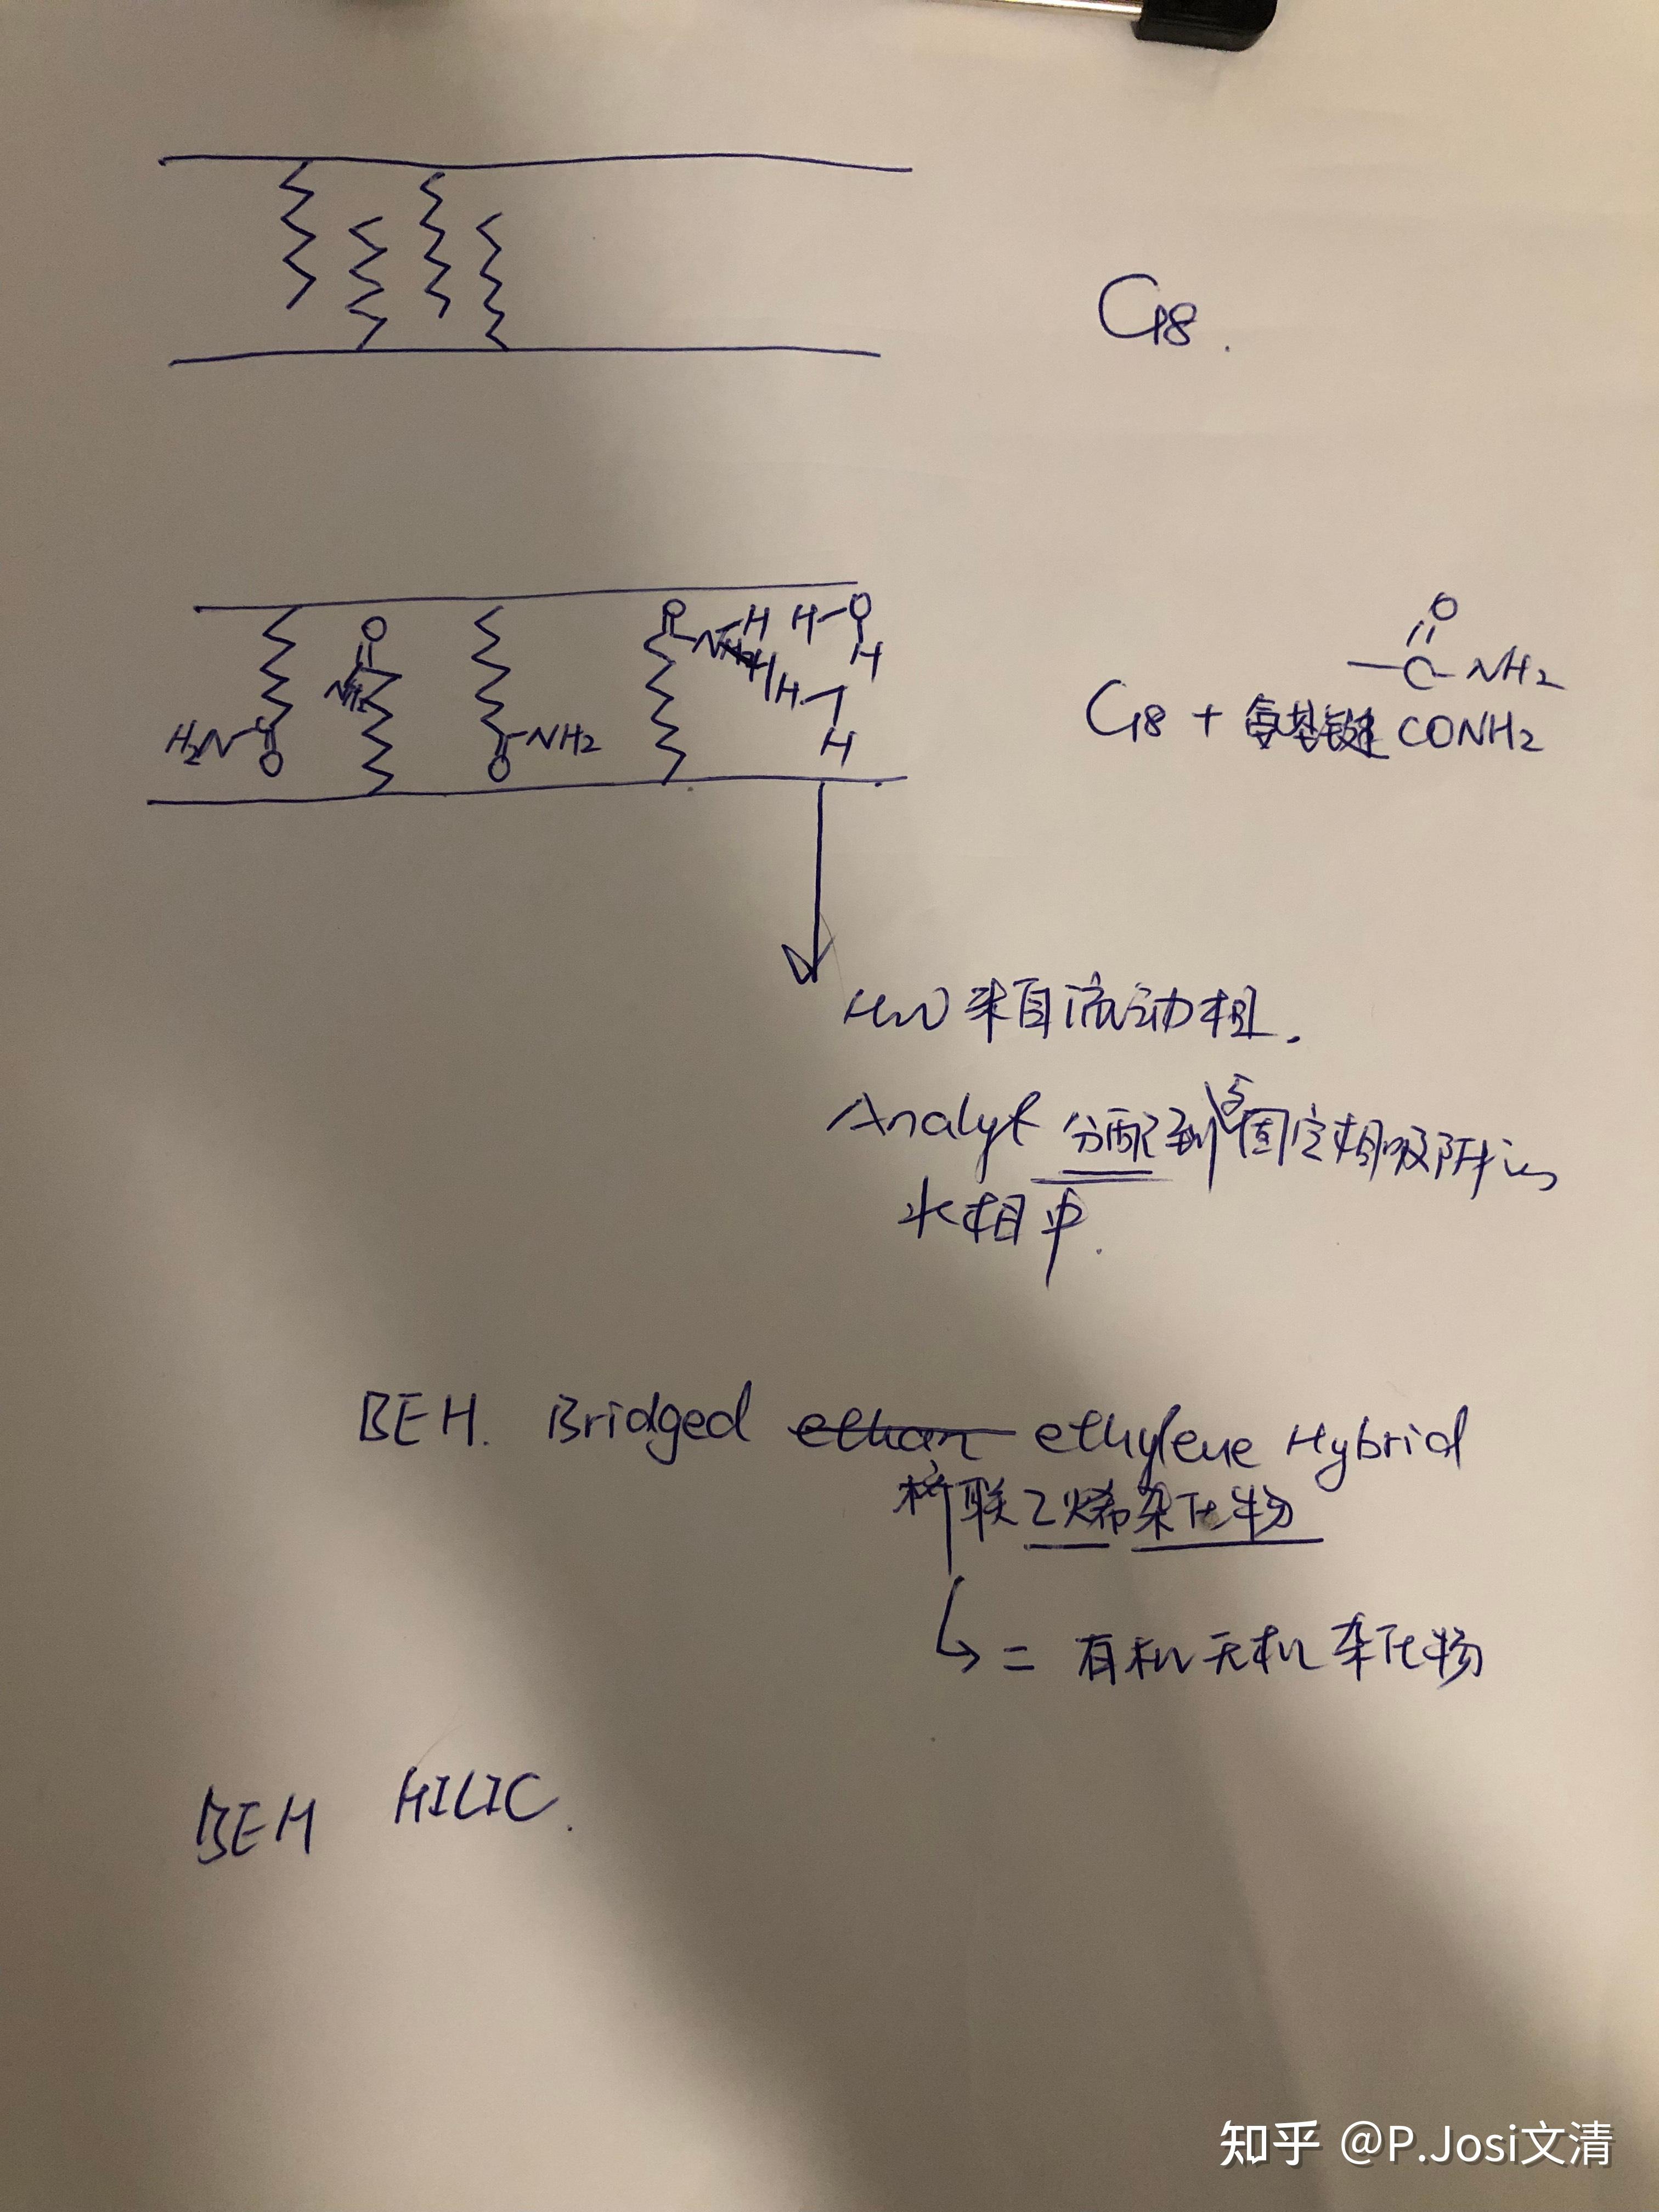 C18.
H₂N
O
NH₂
O
NH₂
O
O
N
H
H
O
H
H
H
O
C
NH₂
C18 + 氨基键 CONH₂
H₂O 来自流动相.
Analyt 分配到与固定相吸附的
水相中.
BEH. Bridged ethan ethylene Hybrid
桥联乙烯杂化物
= 有机无机杂化物
BEH HILIC.
知乎 @P.Josi文清